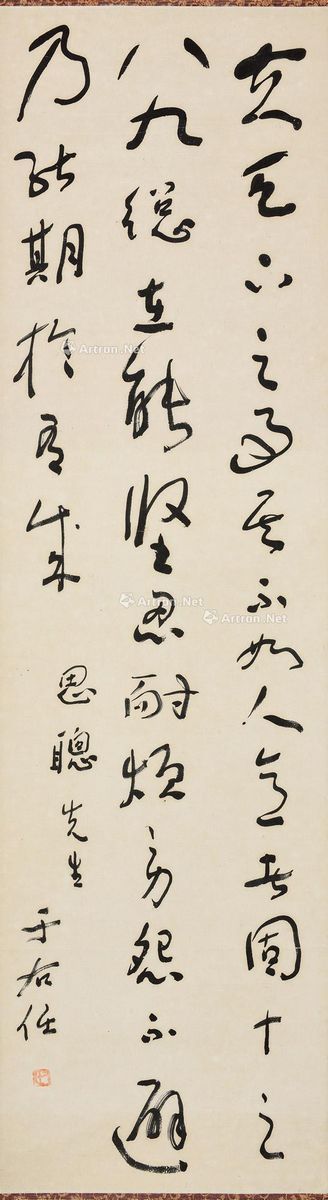 夫天下之事其不如人意者固十之
八九總在能堅忍耐煩勞怨不避
乃能期於有成
思聰先生
于右任
Artron.Net
Artron.Net
Artron.Net